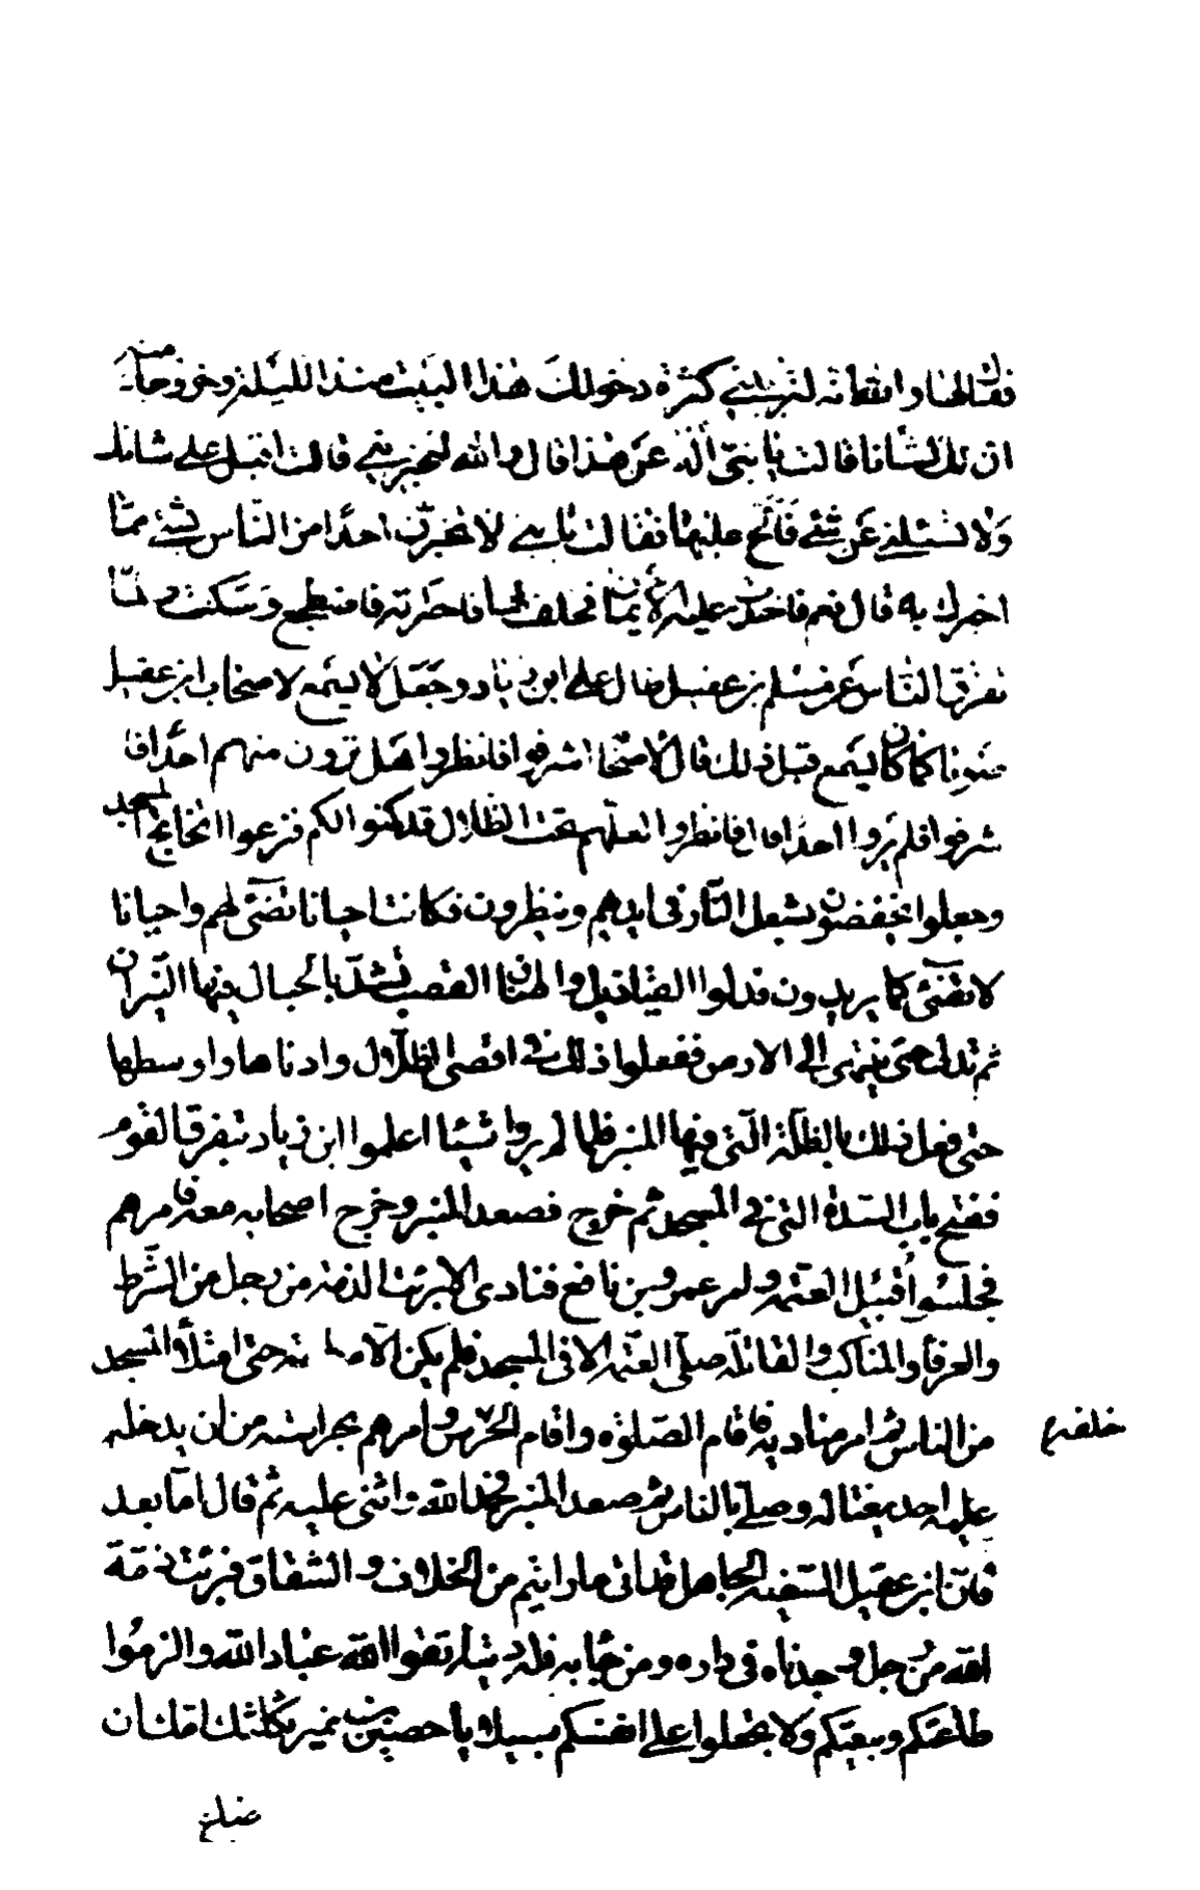 فقال لها والله انه ليريبني كثرة دخولك هذا البيت منذ الليلة وخروجك منه
ان لك لشانا قالت يا بني اله عن هذا قال والله لتخبريني قالت اقبل على شانك
ولا تسئلني عن شئ فالح عليها فقالت يا بني لا تخبرن احدا من الناس بشئ مما
اخبرك به قال نعم فاخذت عليه الايمان فحلف لها فاخبرته فاضطجع وسكت ولما
تفرق الناس عن مسلم بن عقيل طال على ابن زياد وجعل لا يسمع لاصحاب ابن عقيل
صوتا كما كان يسمع قبل ذلك قال لاصحابه اشرفوا فانظروا هل ترون منهم احدا فا
شرفوا فلم يروا احدا قال فانظروا لعلهم تحت الظلال قد كمنوا لكم فنزعوا تخاتج المسجد
وجعلوا يخفضون بشعل النار في ايديهم وينظرون فكانت احيانا تضئ لهم واحيانا
لا تضئ كما يريدون فدلوا القناديل واطنان القصب تشد بالحبال فيها النيران
ثم تدلى حتى ينتهى الى الارض ففعلوا ذلك في اقصى الظلال وادناها واوسطها
حتى فعل ذلك بالظلة التي فيها المنبر فلما لم يروا شيئا اعلموا ابن زياد بتفرق القوم
ففتح باب السدة التي في المسجد ثم خرج فصعد المنبر وخرج اصحابه معه فامرهم
فجلسوا قبيل العتمة وامر عمرو بن نافع فنادى الا برئت الذمة من رجل من الشرط
والعرفاء والمناكب والمقاتلة صلى العتمة الا في المسجد فلم يكن الا ساعة حتى امتلأ المسجد
من الناس ثم امر مناديه فاقام الصلوة واقام الحرس خلفه وامرهم بحراسته من ان يدخل
عليه احد يغتاله وصلى بالناس ثم صعد المنبر فحمد الله واثنى عليه ثم قال اما بعد
فان ابن عقيل السفيه الجاهل قد اتى ما رايتم من الخلاف والشقاق فبرئت ذمة
الله من رجل وجدناه في داره ومن جاء به فله ديته اتقوا الله عباد الله والزموا
طاعتكم وبيعتكم ولا تجعلوا على انفسكم سبيلا يا حصين بن نمير ثكلتك امك ان